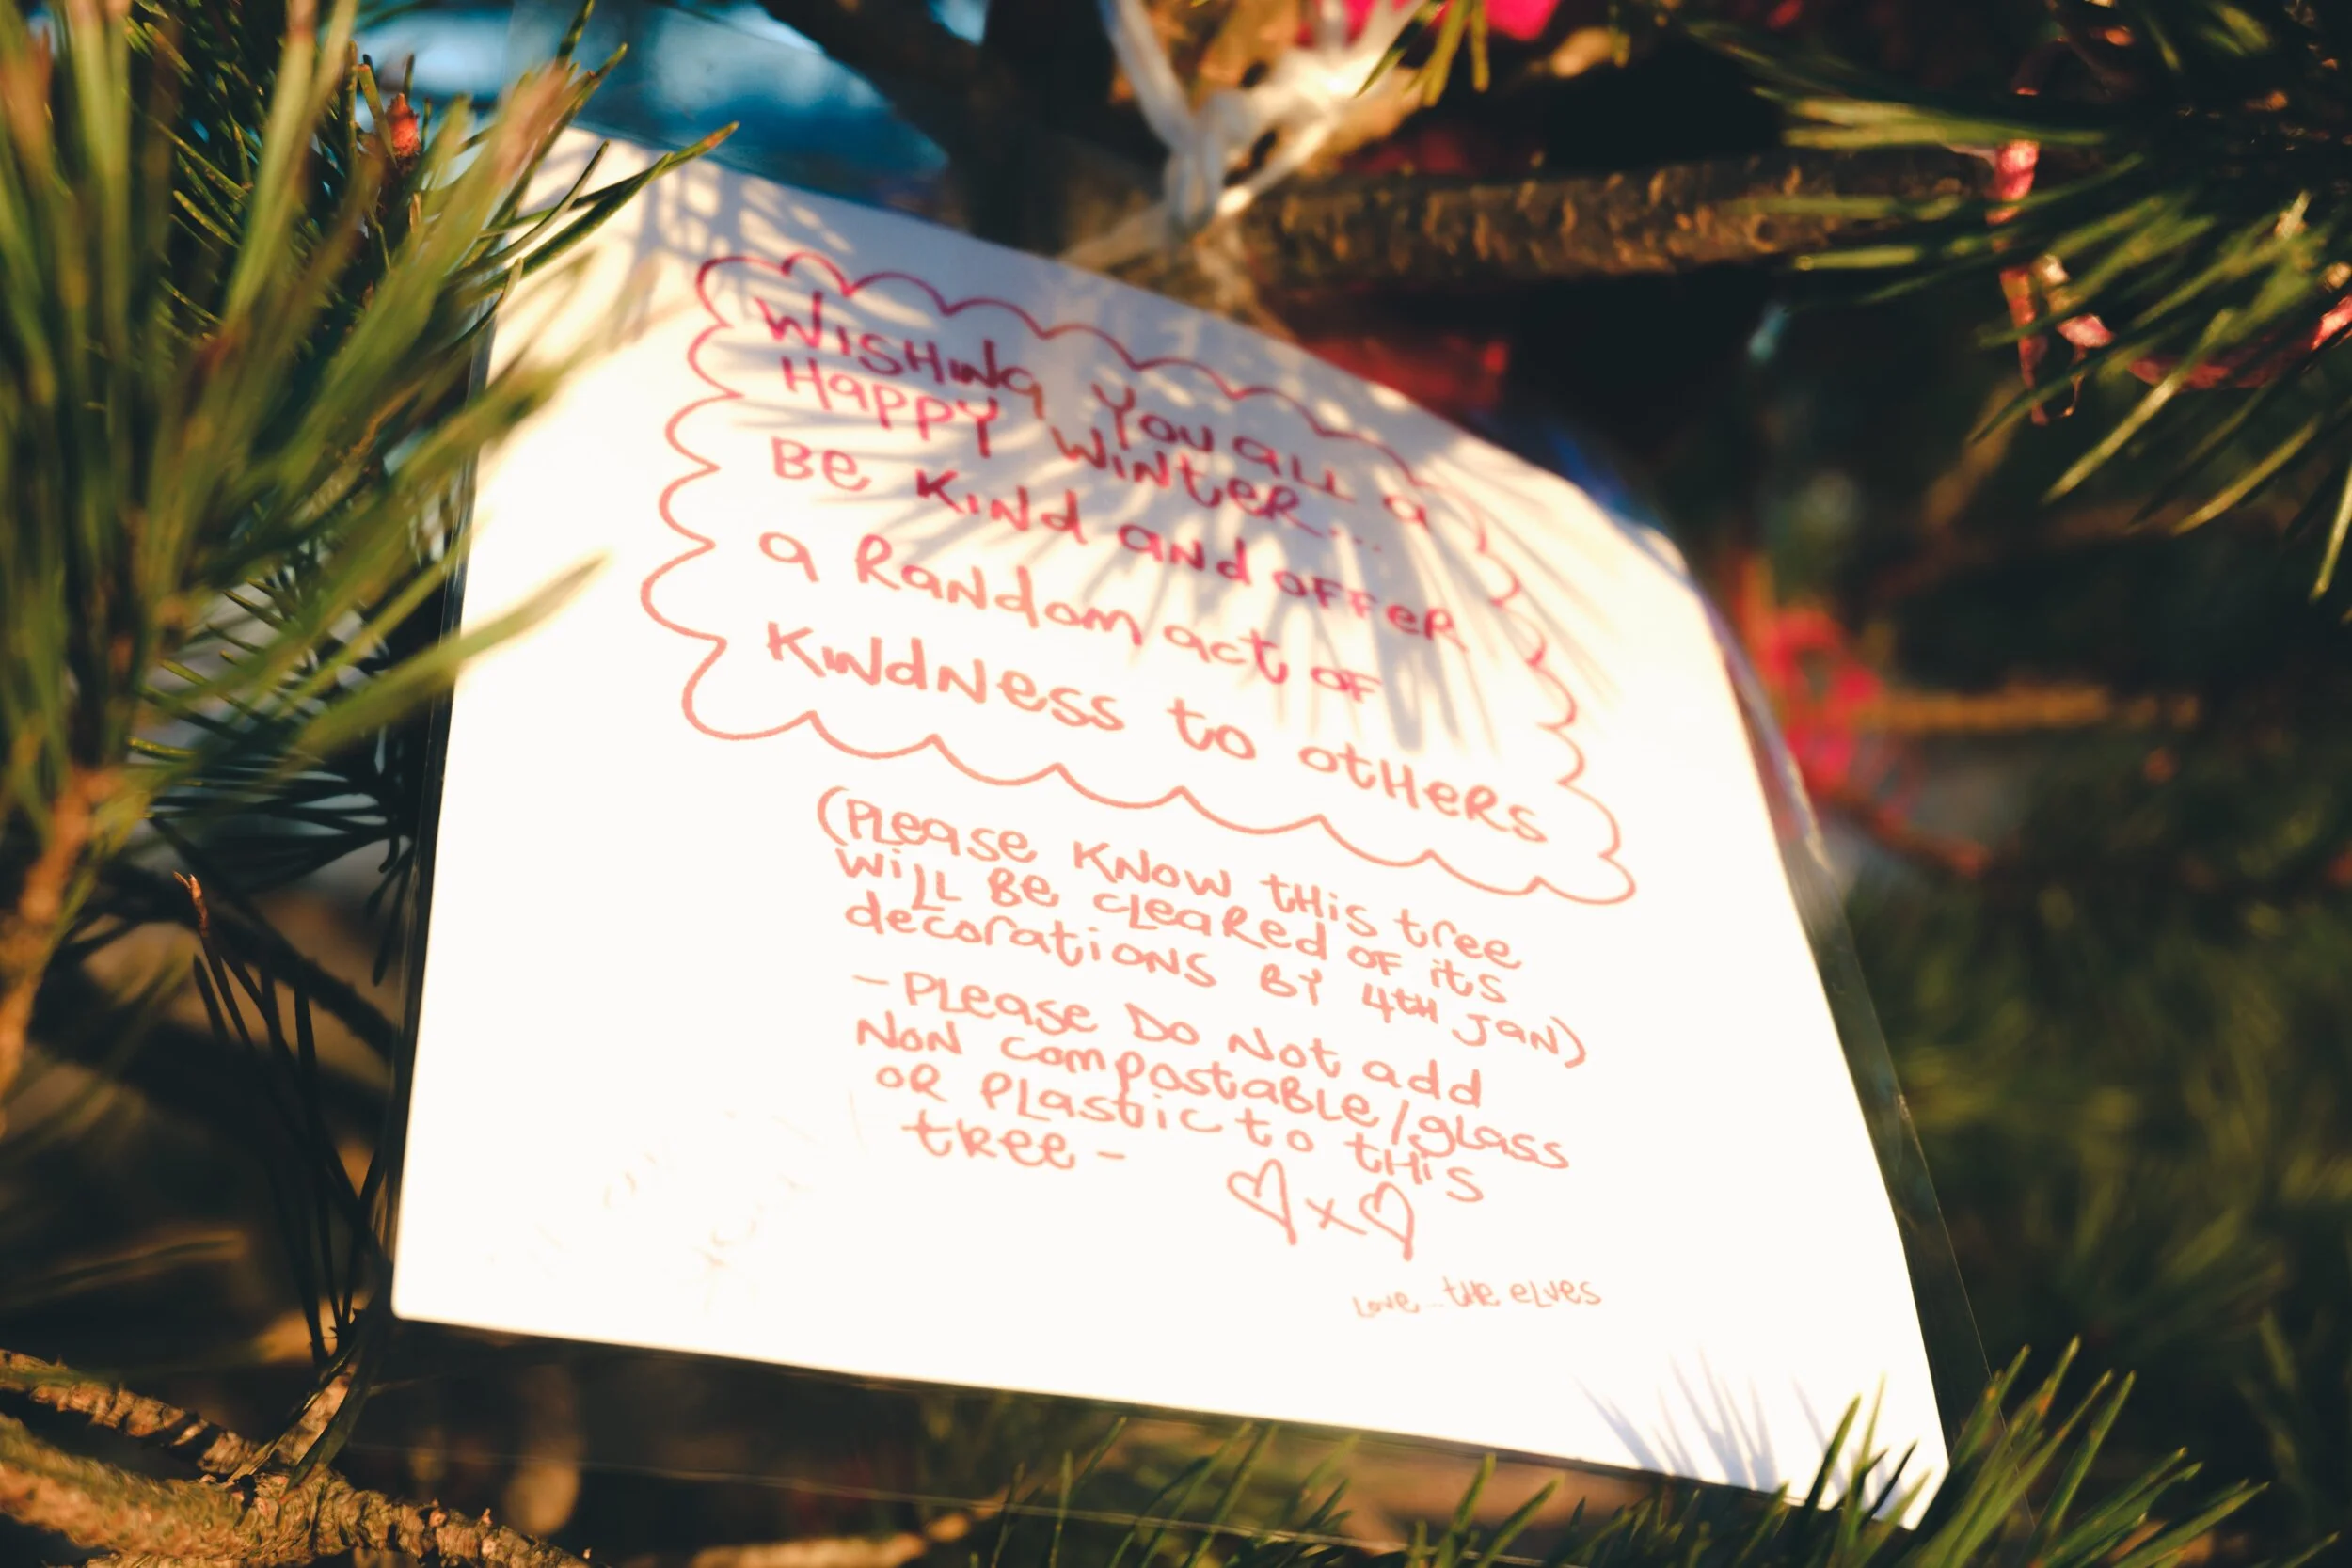 WISHING YOU ALL a
HAPPY WINTER...
BE KIND AND OFFER
a RANdom act OF
KINdNess to otHERS
(PLease KNow tHis tree
WiLL Be cLeaRed oF its
decorations BY 4tH JAN)
- PLease Do Not add
NoN compostaBLe/gLass
oR PLastic to tHis
tRee -
♡x♡
Love... tHe eLves